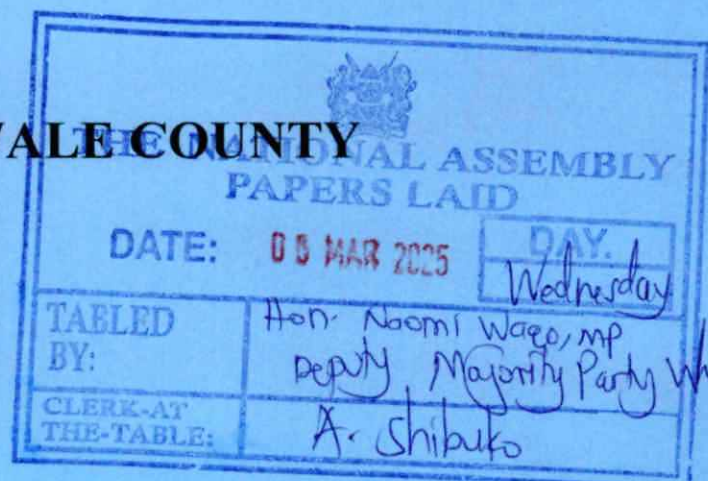 WALE COUNTY
THE NATIONAL ASSEMBLY
PAPERS LAID
DATE: 05 MAR 2025
DAY.
Wednesday
TABLED BY:
Hon. Naomi Waqo, MP
Deputy Majority Party Wh
CLERK-AT THE-TABLE:
A. Shibuko